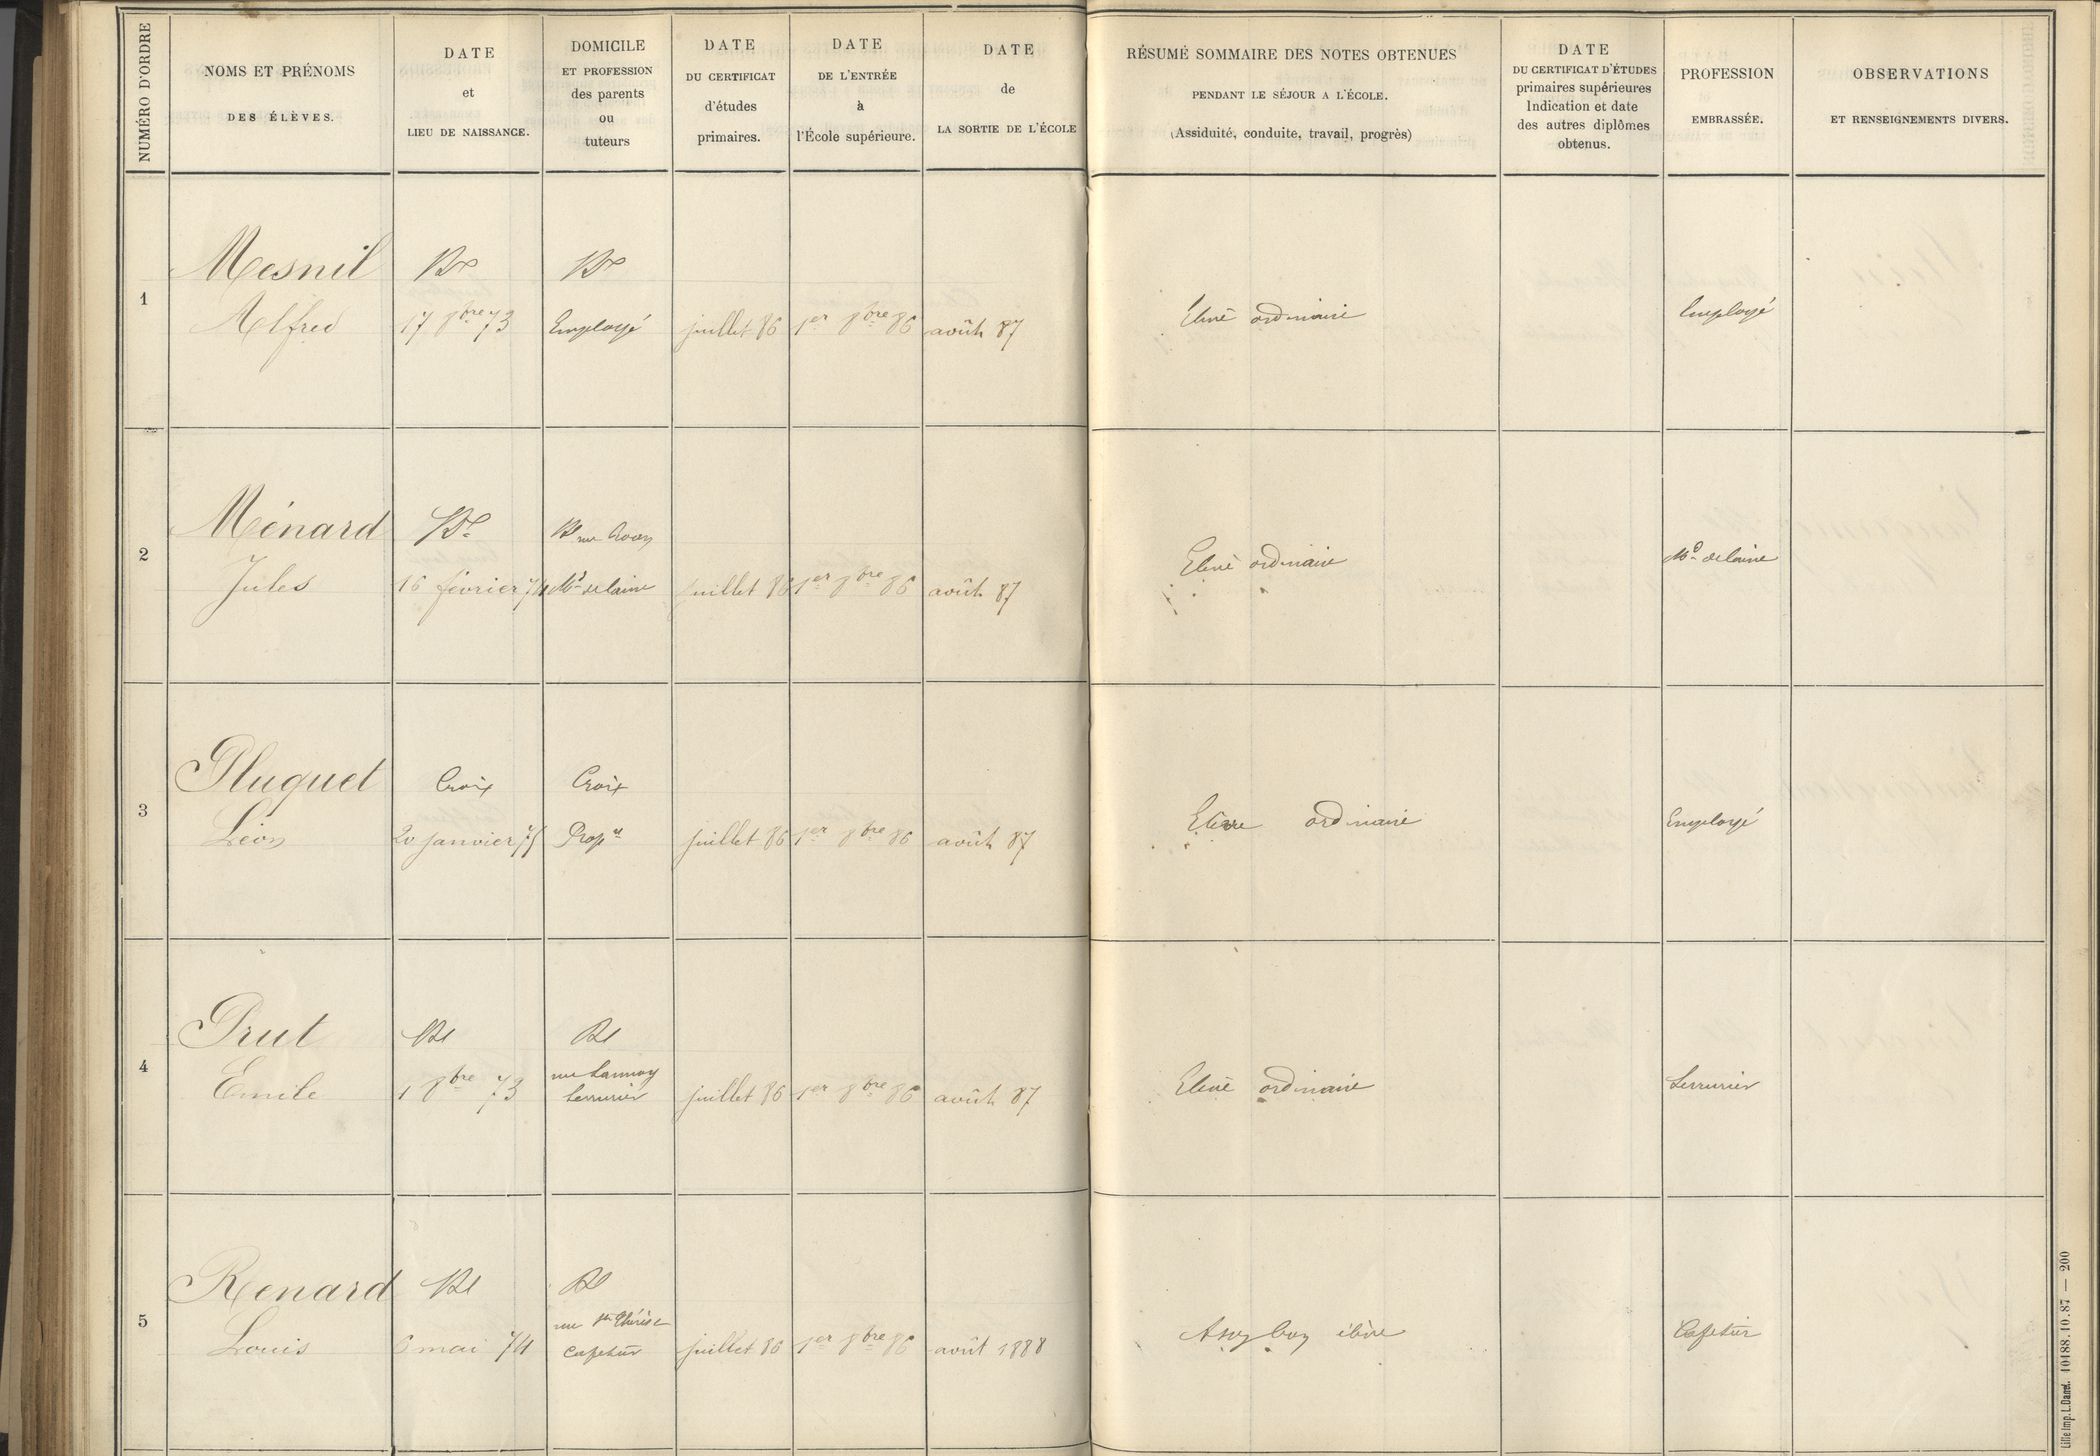 NUMÉRO D'ORDRE
NOMS ET PRÉNOMS
DES ÉLÈVES.
DATE
et
LIEU DE NAISSANCE.
DOMICILE
ET PROFESSION
des parents
ou
tuteurs
DATE
DU CERTIFICAT
d'études
primaires.
DATE
DE L'ENTRÉE
à
l'École supérieure.
DATE
de
LA SORTIE DE L'ÉCOLE
RÉSUMÉ SOMMAIRE DES NOTES OBTENUES
PENDANT LE SÉJOUR A L'ÉCOLE.
(Assiduité, conduite, travail, progrès)
DATE
DU CERTIFICAT D'ÉTUDES
primaires supérieures
Indication et date
des autres diplômes
obtenus.
PROFESSION
EMBRASSÉE.
OBSERVATIONS
ET RENSEIGNEMENTS DIVERS.
1
Mesnil
Alfred
17 8bre 73
Employé
juillet 86
1er 8bre 86
août 87
Elève ordinaire
Employé
2
Ménard
Jules
16 février 74
rue
Md de laine
juillet 86
1er 8bre 86
août 87
Elève ordinaire
Md de laine
3
Pluquet
Léon
Croix
20 janvier 75
Croix
Propre
juillet 86
1er 8bre 86
août 87
Elève ordinaire
Employé
4
Prut
Emile
Rx
1 8bre 73
Rx
rue Lannoy
Serrurier
juillet 86
1er 8bre 86
août 87
Elève ordinaire
Serrurier
5
Renard
Louis
Rx
6 mai 74
Rx
rue Ste Thérèse
Cafetier
juillet 86
1er 8bre 86
août 1888
Assez bon élève
Cafetier
Lille Imp. L. Danel. 10188.10.87 — 200